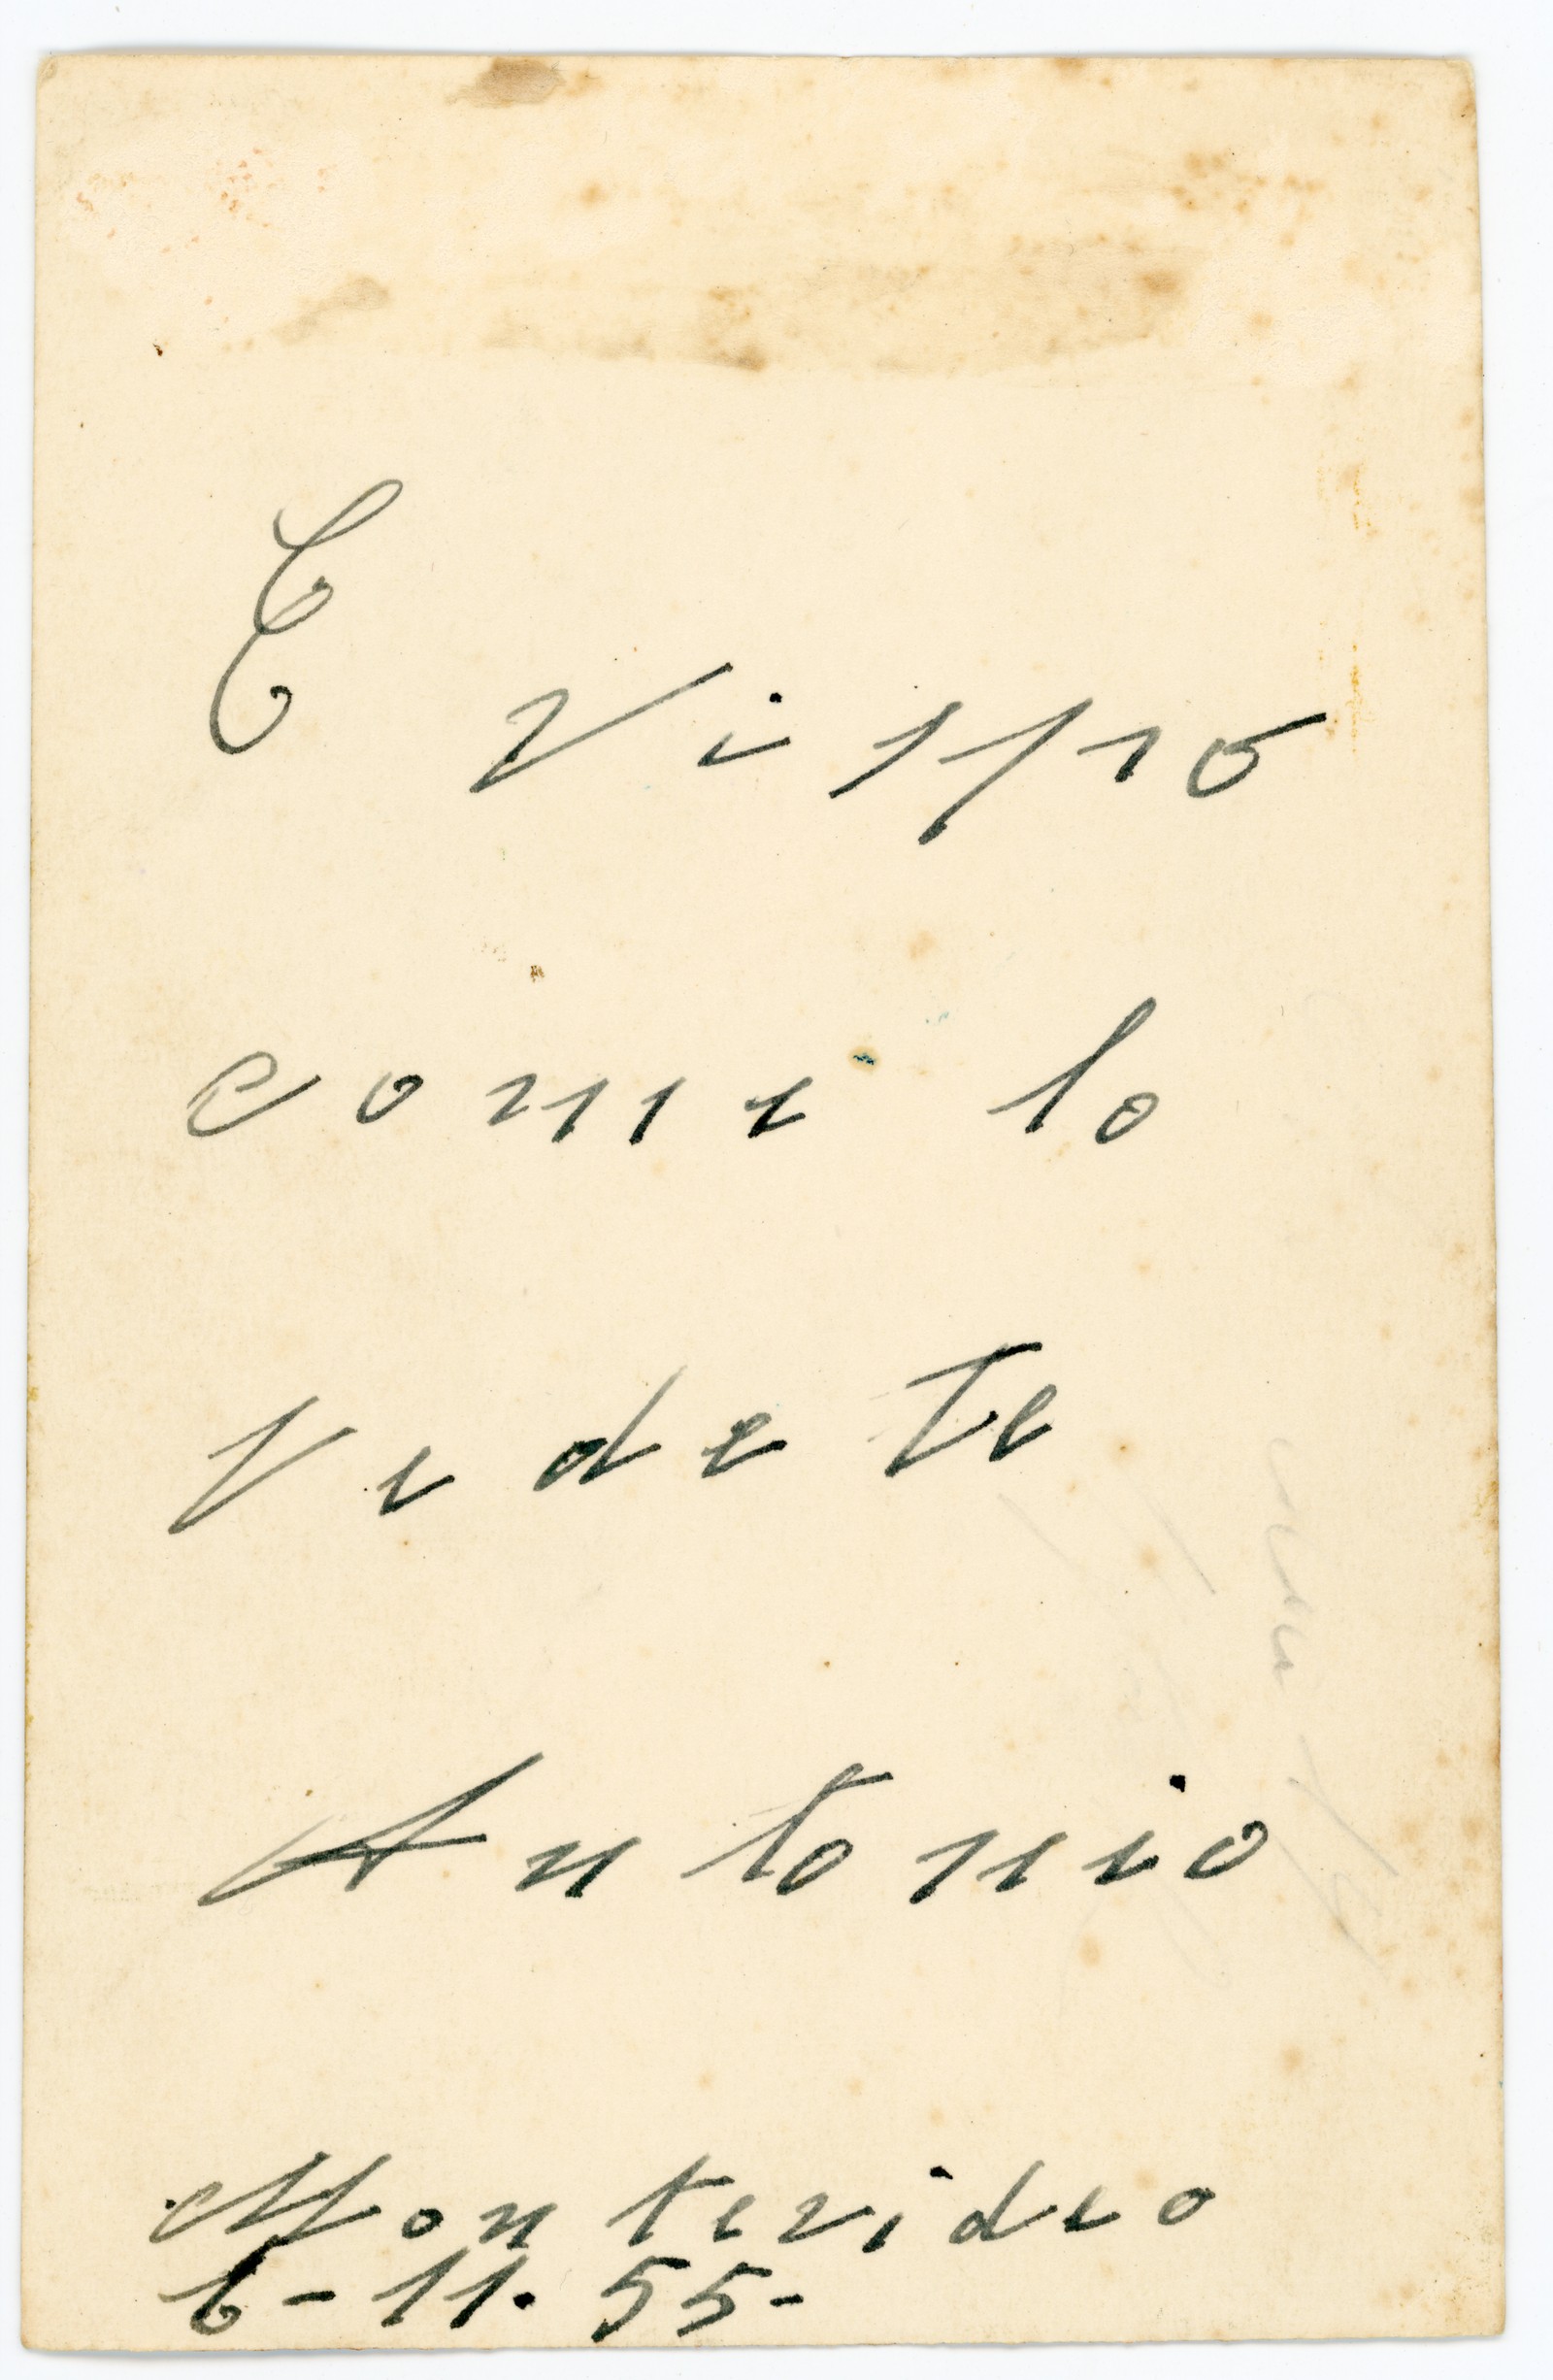 E Vispo
come lo
Vedete
Antonio
Montevideo
6-11.55-